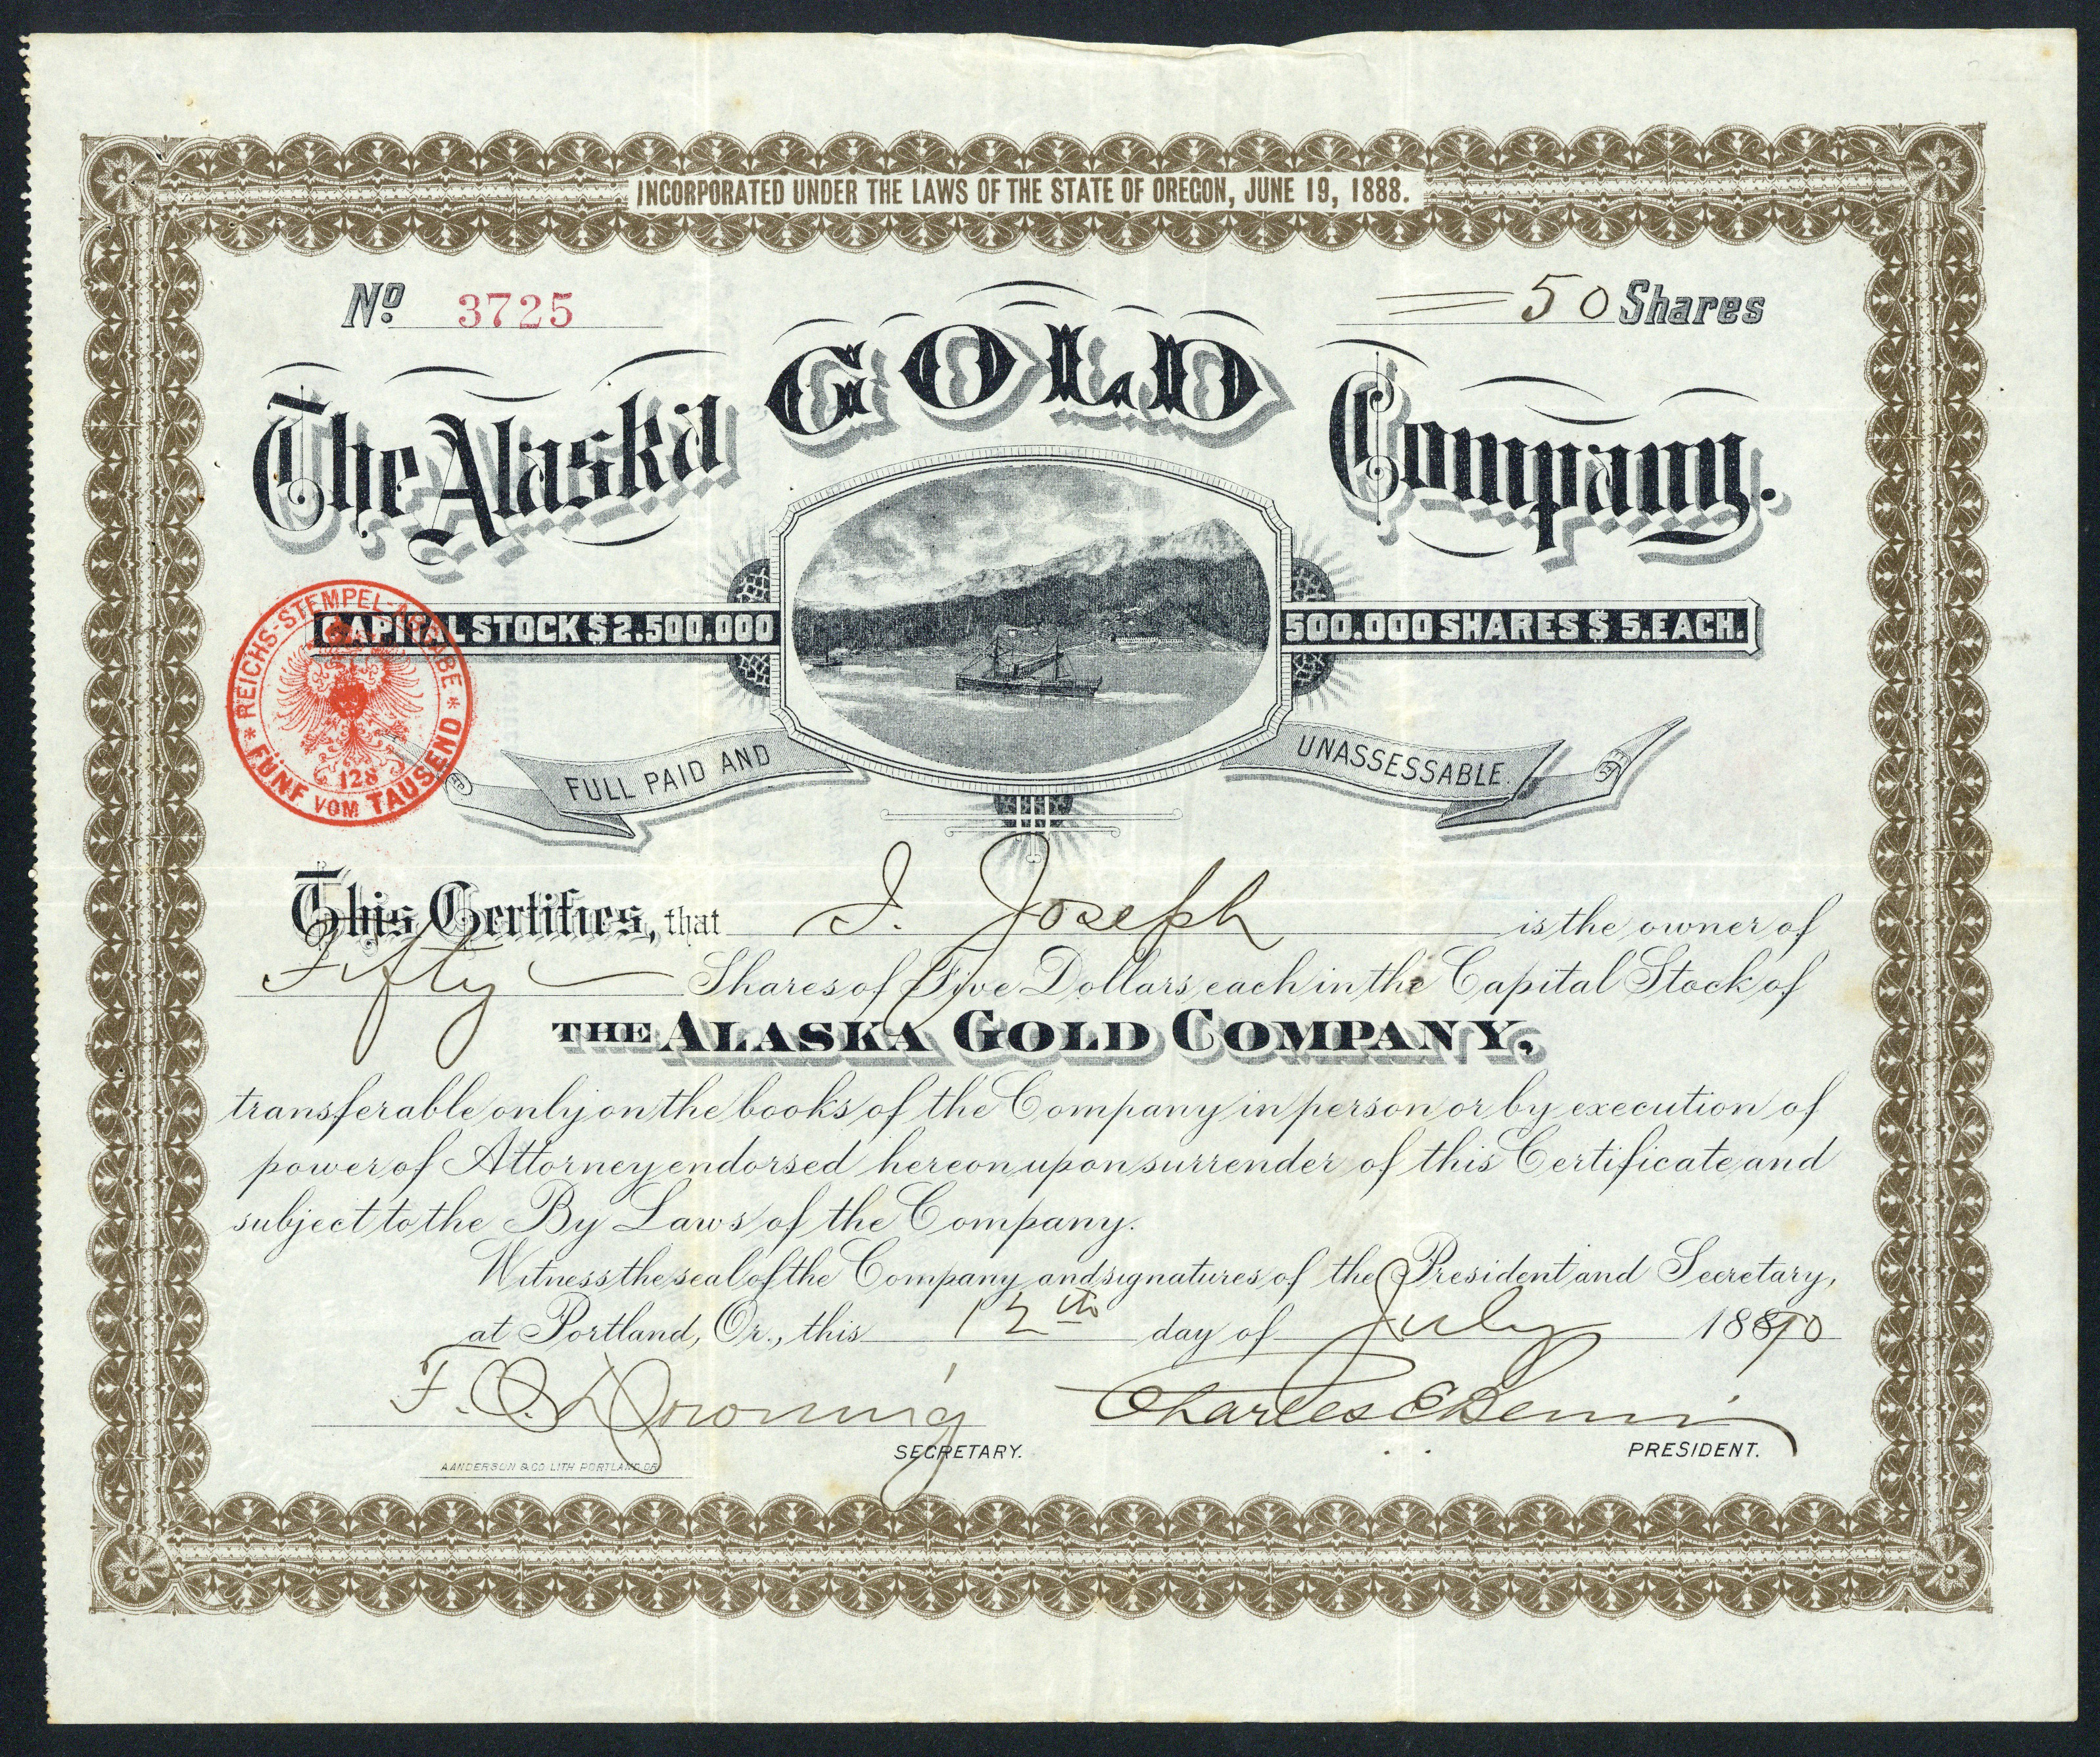 INCORPORATED UNDER THE LAWS OF THE STATE OF OREGON, JUNE 19, 1888.
No. 3725
50 Shares
The Alaska GOLD Company.
CAPITAL STOCK $2.500.000
500.000 SHARES $5.EACH.
* REICHS-STEMPEL-ABGABE *
FÜNF VOM TAUSEND
128
FULL PAID AND
UNASSESSABLE.
This Certifies, that I. Joseph is the owner of
Fifty Shares of Five Dollars each in the Capital Stock of
THE ALASKA GOLD COMPANY,
transferable only on the books of the Company in person or by execution of
power of Attorney endorsed hereon upon surrender of this Certificate and
subject to the By Laws of the Company.
Witness the seal of the Company and signatures of the President and Secretary,
at Portland, Or., this 12th day of July 1890
F. O. Downing
SECRETARY.
Charles E
PRESIDENT.
A ANDERSON & CO LITH PORTLAND OR